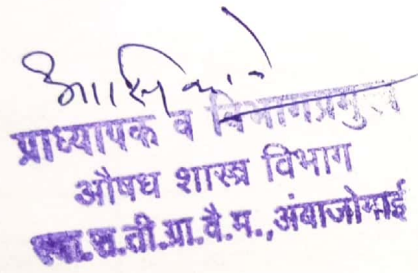 प्राध्यापक व विभागप्रमुख
औषध शास्त्र विभाग
स्वा.रा.ती.ग्रा.वै.म.,अंबाजोगाई